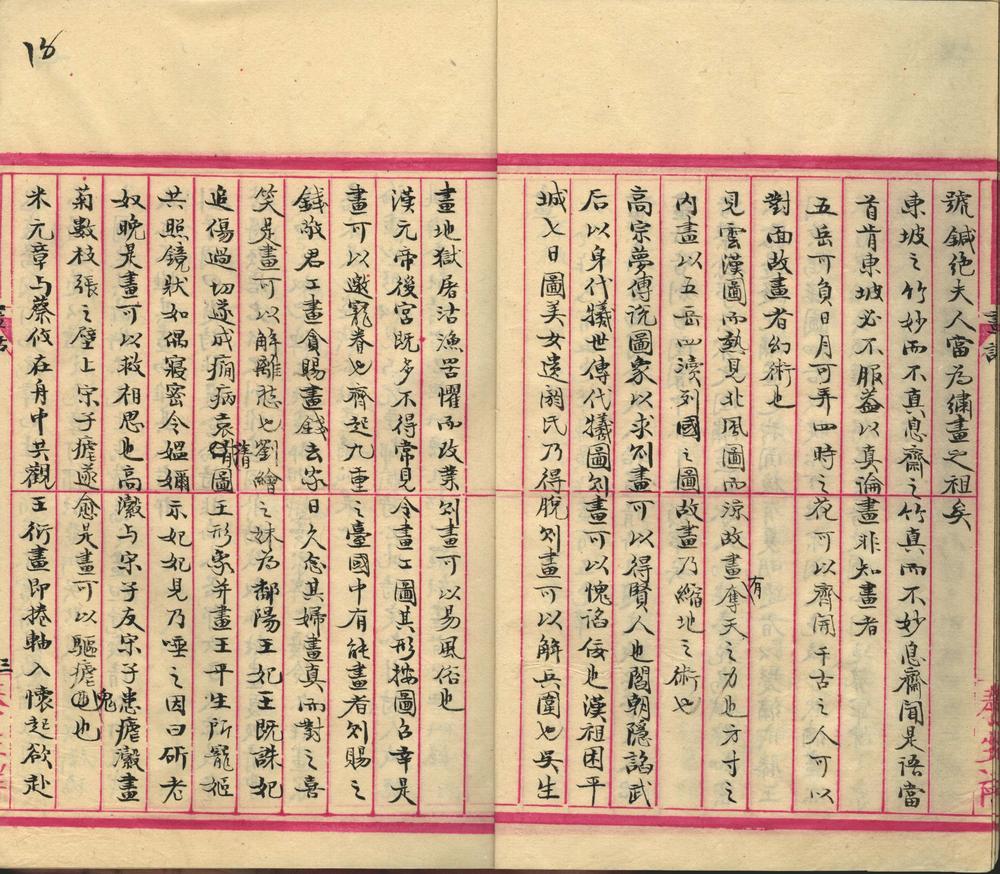 號鍼絶夫人當為繡畫之祖矣
東坡之竹妙而不真息齋之竹真而不妙息齋聞是語當
首肯東坡必不服葢以真論畫非知畫者
五岳可負日月可弄四時之花可以齊開千古之人可以
對面故畫者幻術也
見雲漢圖而熱見北風圖而涼故畫有奪天之功也方寸之
內畫以五岳四瀆列國之圖故畫乃縮地之術也
高宗夢傅說圖象以求则畫可以得賢人也閻朝隱諂武
后以身代犧世傳代犧圖则畫可以愧諂佞也漢祖困平
城七日圖美女遗閼氏乃得脫则畫可以解兵圍也吳生
畫地獄屠沽漁罟懼而改業则畫可以易風俗也
漢元帝後宮既多不得常見令畫工圖其形按圖召幸是
畫可以邀寵眷也齊起九重之臺國中有能畫者则賜之
錢敬君工畫貪賜畫錢去家日久念其婦畫真而對之喜
笑是畫可以解離愁也劉繪之妹為鄱陽王妃王既誅妃
追傷過切遂成痼病袁蒨圖王形象并畫王平生所寵姬
共照鏡狀如偶寢密令媼嬭示妃妃見乃唾之因曰斫老
奴晚是畫可以救相思也高瀔与宋子友宋子患瘧瀔畫
菊數枝張之壁上宋子瘧遂愈是畫可以驅瘧鬼也
米元章与蔡攸在舟中共觀王衍畫即捲軸入懷起欲赴
畫話
三
18